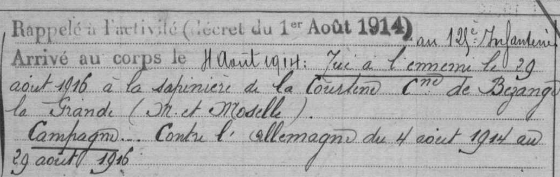 Rappelé à l'activité (décret du 1er Août 1914) au 125e Infanterie
Arrivé au corps le 4 Août 1914. Tué à l'ennemi le 29
août 1916 à la sapinière de la Courtine Cne de Bezange
la Grande (M. et Moselle).
Campagne... Contre l'Allemagne du 4 août 1914 au
29 août 1916.